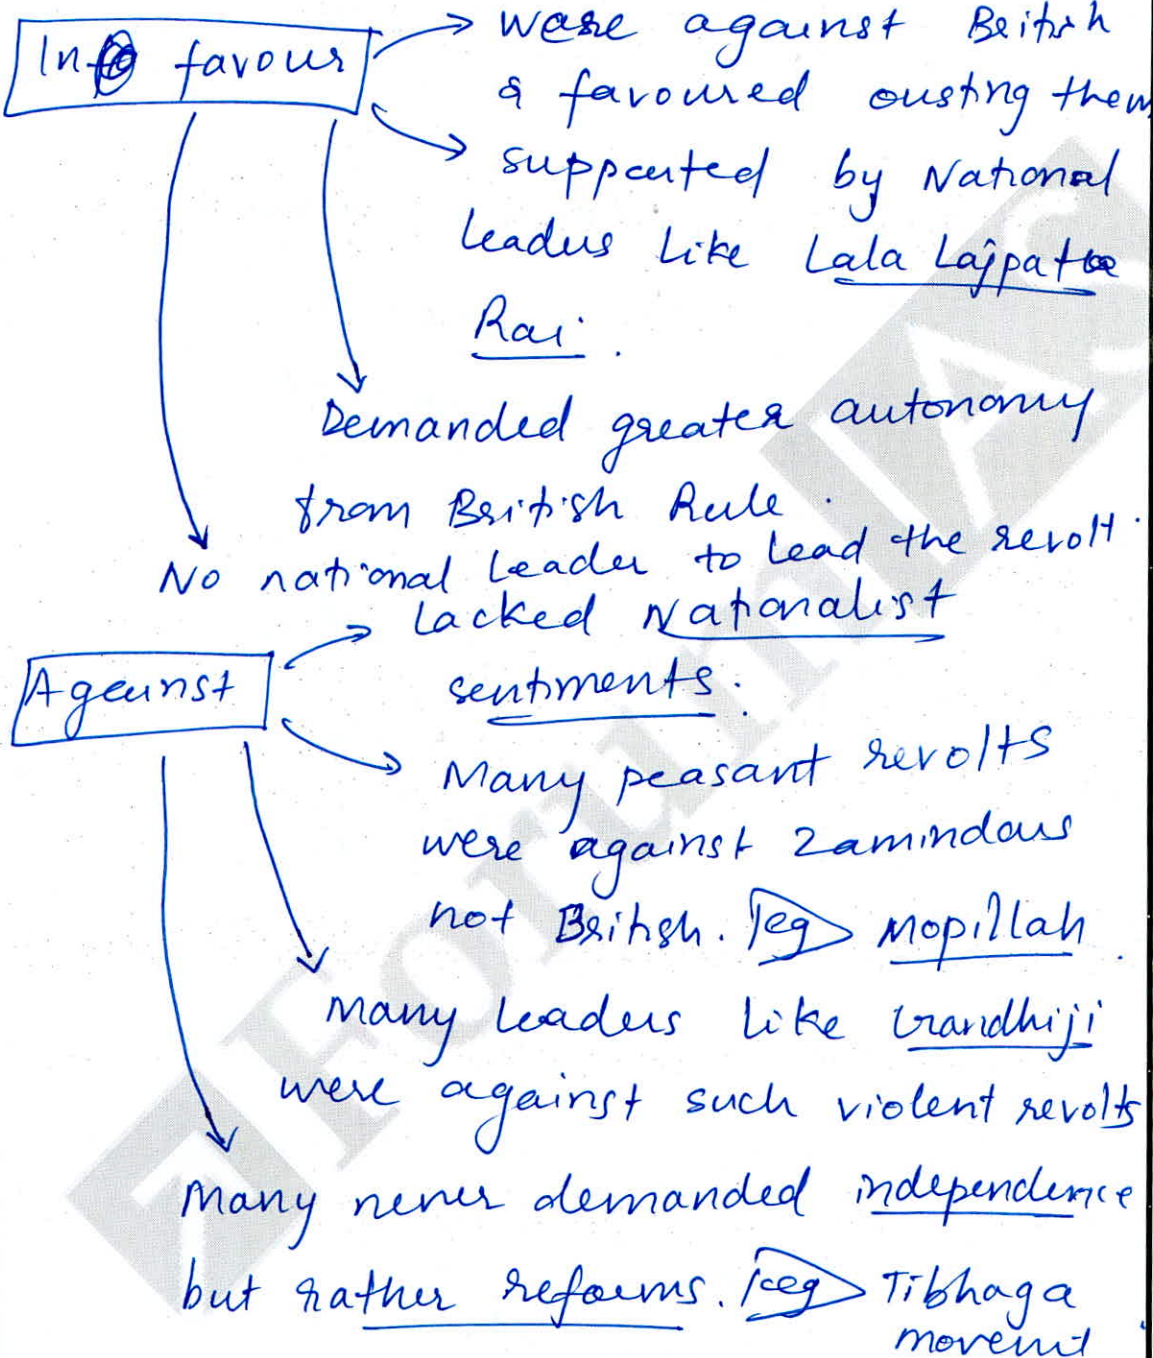 In favour
were against British
& favoured ousting them
supported by National
leaders like Lala Lajpat
Rai.
Demanded greater autonomy
from British Rule.
No national leader to lead the revolt.
Against
lacked Nationalist
sentiments.
Many peasant revolts
were against zamindars
not British. eg Mopillah.
Many leaders like Gandhiji
were against such violent revolts
Many never demanded independence
but rather reforms. eg Tibhaga
movemt
Forum IAS